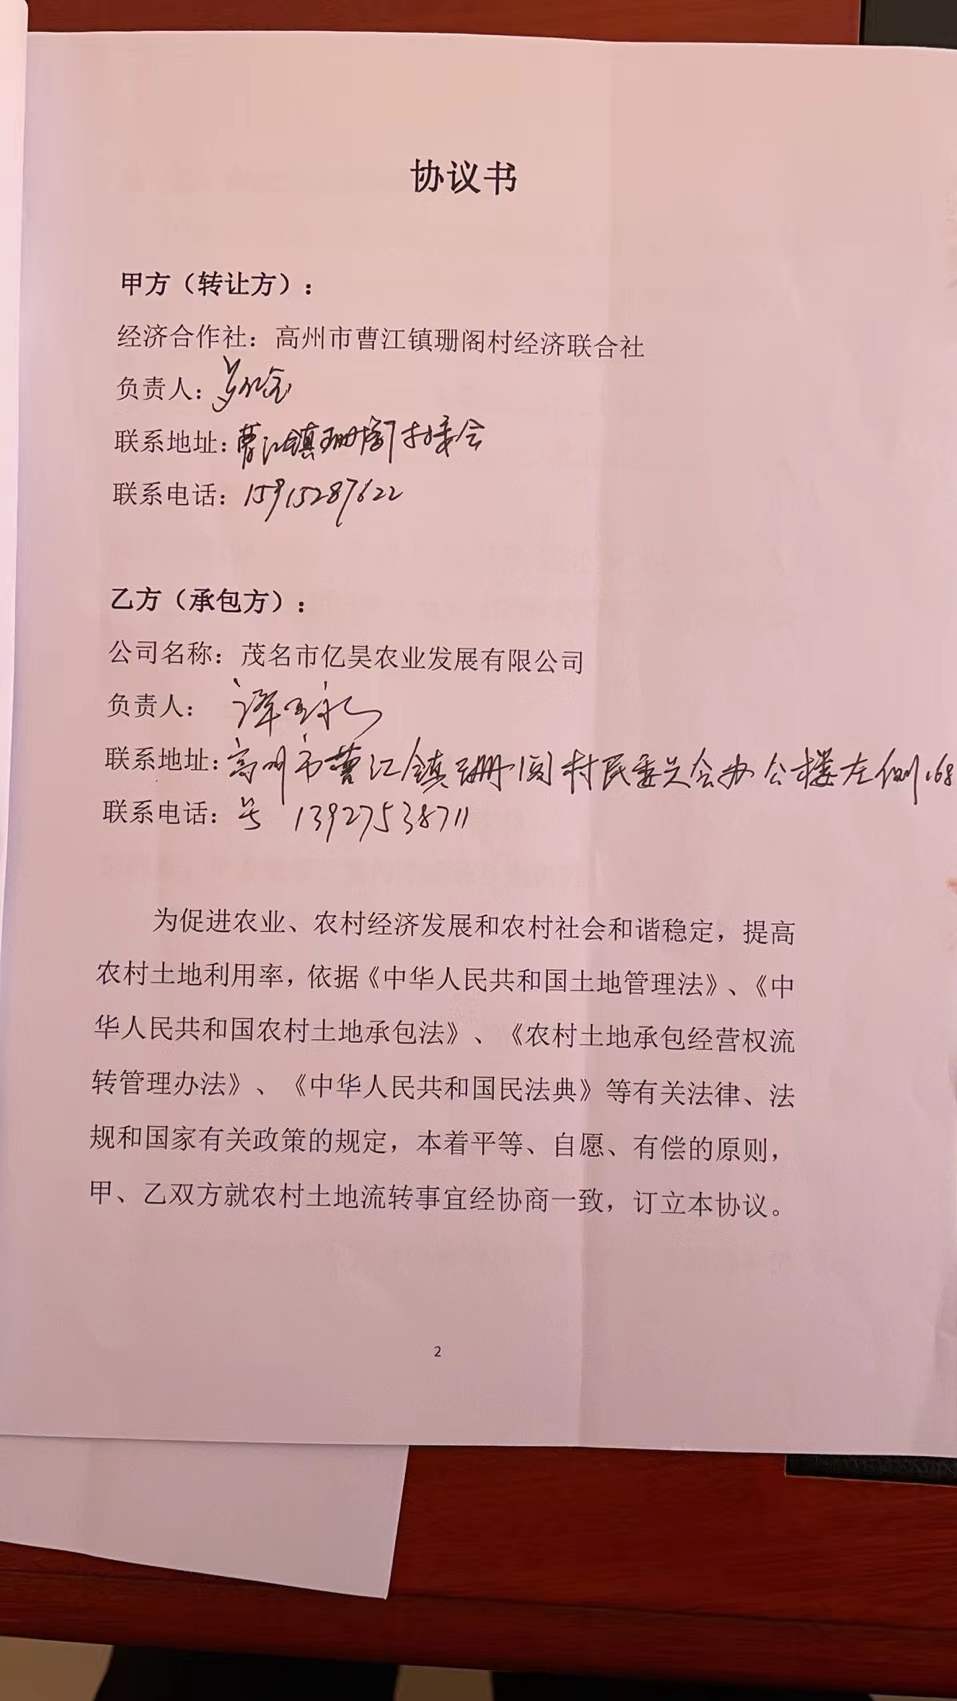 协议书
甲方（转让方）：
经济合作社：高州市曹江镇珊阁村经济联合社
负责人：
联系地址：曹江镇珊阁村委会
联系电话：15915287622
乙方（承包方）：
公司名称：茂名市亿昊农业发展有限公司
负责人：
联系地址：高州市曹江镇珊阁村民委员会办公楼左侧168
联系电话：号 13927538711
为促进农业、农村经济发展和农村社会和谐稳定，提高
农村土地利用率，依据《中华人民共和国土地管理法》、《中
华人民共和国农村土地承包法》、《农村土地承包经营权流
转管理办法》、《中华人民共和国民法典》等有关法律、法
规和国家有关政策的规定，本着平等、自愿、有偿的原则，
甲、乙双方就农村土地流转事宜经协商一致，订立本协议。
2